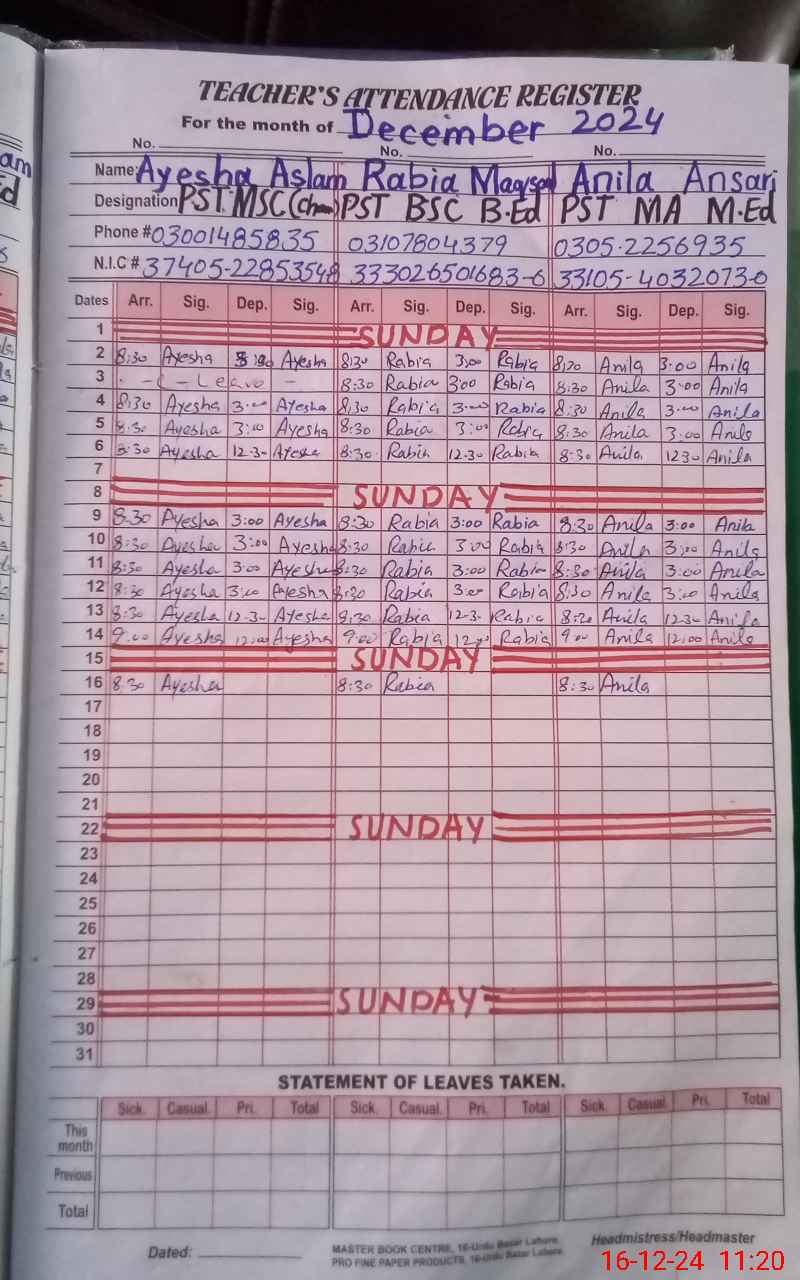 TEACHER'S ATTENDANCE REGISTER
For the month of December 2024
No. No. No.
Name: Ayesha Aslam Rabia Maqsood Anila Ansari
Designation PST MSC(Chem) PST BSC B.Ed PST MA M.Ed
Phone # 03001485835 03107804379 0305-2256935
N.I.C # 37405-22853548 333026501683-6 33105-4032073-0
Dates Arr. Sig. Dep. Sig. Arr. Sig. Dep. Sig. Arr. Sig. Dep. Sig.
1 SUNDAY
2 8:30 Ayesha Ayesha 8:30 Rabia 3:00 Rabia 8:30 Anila 3:00 Anila
3 - C - Leave - 8:30 Rabia 3:00 Rabia 8:30 Anila 3:00 Anila
4 8:30 Ayesha 3:00 Ayesha 8:30 Rabia 3:00 Rabia 8:30 Anila 3:00 Anila
5 8:30 Ayesha 3:00 Ayesha 8:30 Rabia 3:00 Rabia 8:30 Anila 3:00 Anila
6 8:30 Ayesha 12-30 Ayesha 8:30 Rabia 12-30 Rabia 8:30 Anila 1230 Anila
7
8 SUNDAY
9 8:30 Ayesha 3:00 Ayesha 8:30 Rabia 3:00 Rabia 8:30 Anila 3:00 Anila
10 8:30 Ayesha 3:00 Ayesha 8:30 Rabia 3:00 Rabia 8:30 Anila 3:00 Anila
11 8:30 Ayesha 3:00 Ayesha 8:30 Rabia 3:00 Rabia 8:30 Anila 3:00 Anila
12 8:30 Ayesha 3:00 Ayesha 8:30 Rabia 3:00 Rabia 8:30 Anila 3:00 Anila
13 8:30 Ayesha 12-30 Ayesha 8:30 Rabia 12-30 Rabia 8:30 Anila 12-30 Anila
14 9:00 Ayesha 12:00 Ayesha 9:00 Rabia 12:00 Rabia 9:00 Anila 12:00 Anila
15 SUNDAY
16 8:30 Ayesha 8:30 Rabia 8:30 Anila
17
18
19
20
21
22 SUNDAY
23
24
25
26
27
28
29 SUNDAY
30
31
STATEMENT OF LEAVES TAKEN.
Sick. Casual. Pri. Total Sick. Casual. Pri. Total Sick. Casual. Pri. Total
This month
Previous
Total
Dated: MASTER BOOK CENTRE, 16-Urdu Bazar Lahore. Headmistress/Headmaster
PRO FINE PAPER PRODUCTS, 16-Urdu Bazar Lahore.
16-12-24 11:20